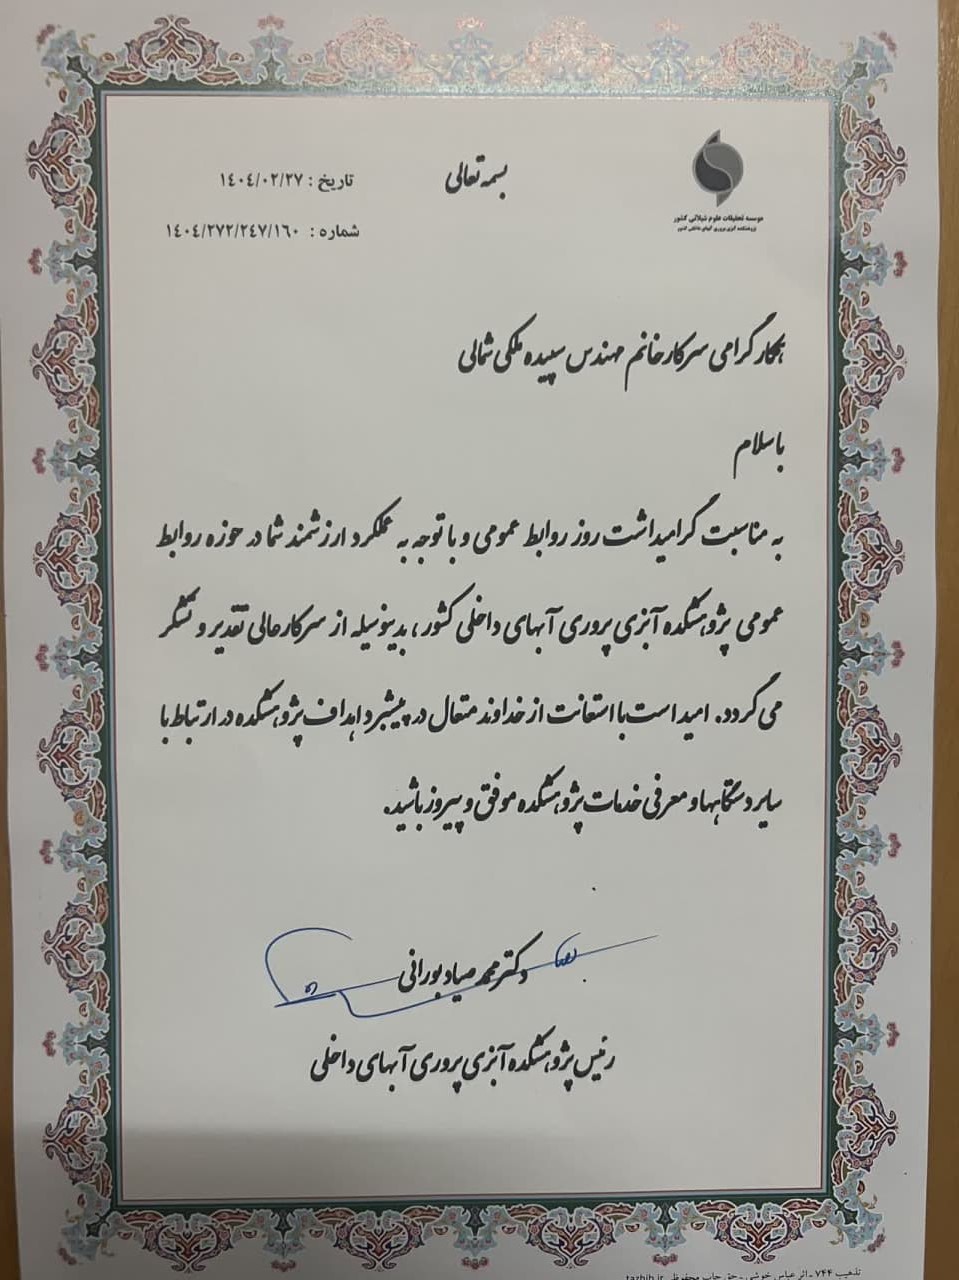 موسسه تحقیقات علوم شیلاتی کشور
پژوهشکده آبزی پروری آبهای داخلی کشور
بسمه تعالی
تاریخ : ۱٤۰٤/۰۲/۲۷
شماره : ۱٤۰٤/۲۷۲/۲٤۷/۱٦۰
همکار گرامی سرکار خانم مهندس سپیده ملکی شمالی
با سلام
به مناسبت گرامیداشت روز روابط عمومی و با توجه به عملکرد ارزشمند شما در حوزه روابط
عمومی پژوهشکده آبزی پروری آبهای داخلی کشور، بدینوسیله از سرکارعالی تقدیر و تشکر
می گردد. امید است با استعانت از خداوند متعال در پیشبرد اهداف پژوهشکده در ارتباط با
سایر دستگاهها و معرفی خدمات پژوهشکده موفق و پیروز باشید.
دکتر محمد صیاد بورانی
رئیس پژوهشکده آبزی پروری آبهای داخلی
تذهیب ۷۴۴ - اثر عباس خوشی - حق چاپ محفوظ tazhib.ir